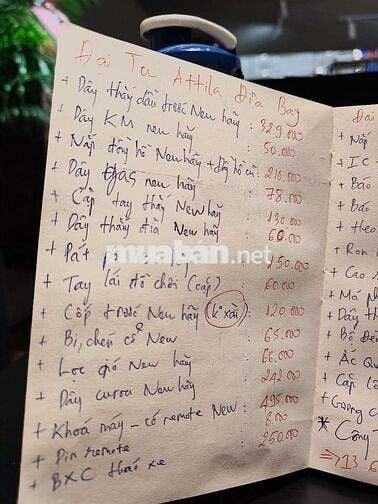 Đại Tu Attila Đĩa Bay
+ Dây thắng dầu trước New hãy : 329.000
+ Dây KM new hãy : 50.000
+ Nắp đồng hồ New hãy + đây hồ cũ : 210.000
+ Dây gas new hãy : 78.000
+ Cặp tay thắng New hãy : 130.000
+ Dây thắng đĩa New hãy : 60.000
+ Pát : 150.000
+ Tay lái đồ chơi (cặp) : 60.000
+ Cốp trước New hãy (k° xài) : 120.000
+ Bi, chén cổ New : 65.000
+ Lọc gió New hãy : 66.000
+ Dây curoa New hãy : 242.000
+ Khoá máy - có remote New : 495.000
+ Pin remote : 8.000
+ BXC tháo xe : 250.000
muaban.net
Đại
+ Nắp
+ IC
+ Báo
+ Báo
+ theo
+ Ron
+ Cao s
+ Má ph
+ Dây th
+ Bố Đề
+ Ắc Qu
+ Cặp lố
+ Gương c
* Công T
=> 13.6